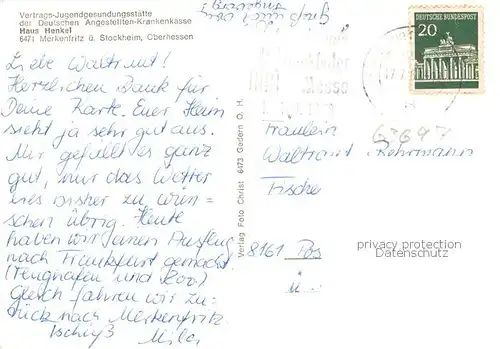 Vertrags-Jugendgesundungsstätte
der Deutschen Angestellten-Krankenkasse
Haus Henkel
6471 Merkenfritz ü. Stockheim, Oberhessen
Liebe Waltraut!
Herzlichen Dank für
Deine Karte. Euer Heim
sieht ja sehr gut aus.
Mir gefällt es ganz
gut, nur das Wetter
lies bisher zu wün=
schen übrig. Heute
haben wir einen Ausflug
nach Frankfurt gemacht
(Flughafen und Zoo)
Gleich fahren wir zu-
rück nach Merkenfritz
Tschüß
Verlag Foto Christ 6473 Gedern O. H.
DEUTSCHE BUNDESPOST
20
Fräulein
Waltraut
Fische
8161
privacy protection
Datenschutz